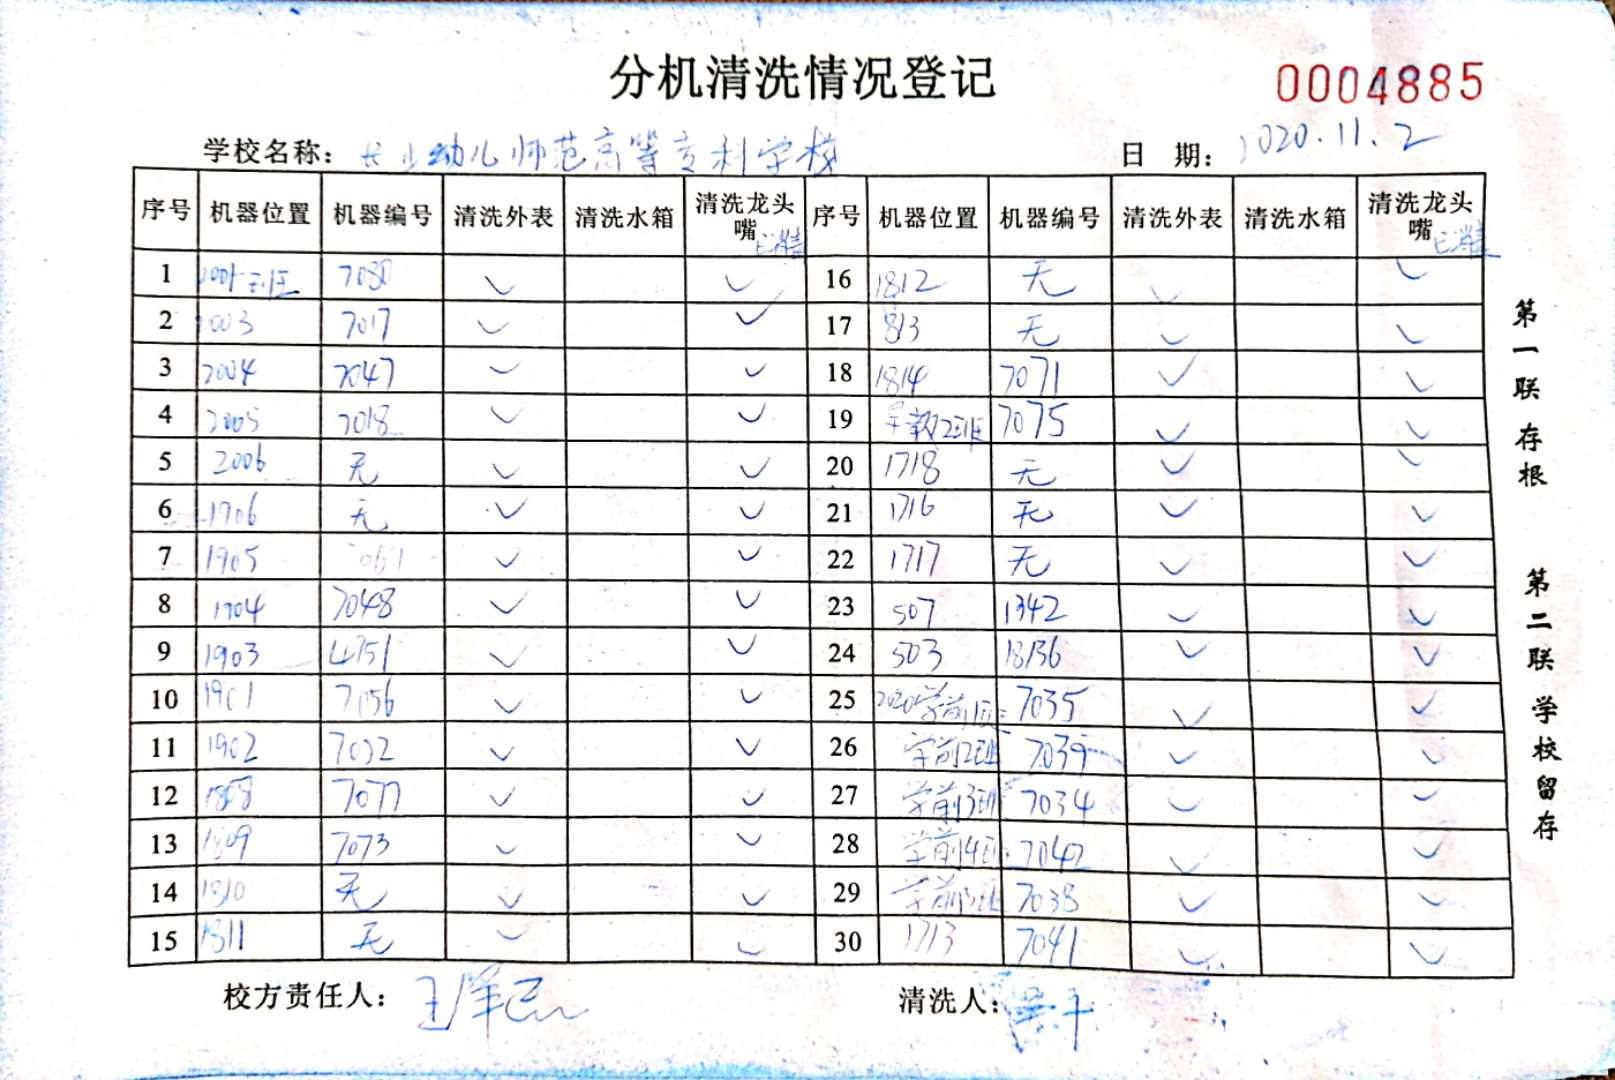 分机清洗情况登记
0004885
学校名称：长沙幼儿师范高等专科学校 日 期：2020.11.2
序号 机器位置 机器编号 清洗外表 清洗水箱 清洗龙头嘴 序号 机器位置 机器编号 清洗外表 清洗水箱 清洗龙头嘴
1 2001 7080 ✓ ✓ 16 1812 无 ✓ ✓
2 2003 7017 ✓ ✓ 17 813 无 ✓ ✓
3 2004 7047 ✓ ✓ 18 1814 7071 ✓ ✓
4 2005 7018 ✓ ✓ 19 早教2班 7075 ✓ ✓
5 2006 无 ✓ ✓ 20 1718 无 ✓ ✓
6 1906 无 ✓ ✓ 21 1716 无 ✓ ✓
7 1905 ✓ ✓ 22 1717 无 ✓ ✓
8 1904 7048 ✓ ✓ 23 507 1342 ✓ ✓
9 1903 4751 ✓ ✓ 24 503 18136 ✓ ✓
10 1901 7056 ✓ ✓ 25 2020学前1班 7035 ✓ ✓
11 1902 7032 ✓ ✓ 26 学前2班 7039 ✓ ✓
12 1808 7077 ✓ ✓ 27 学前3班 7034 ✓ ✓
13 1809 7073 ✓ ✓ 28 学前4班 7042 ✓ ✓
14 1810 无 ✓ ✓ 29 学前5班 7038 ✓ ✓
15 1811 无 ✓ ✓ 30 1713 7041 ✓ ✓
校方责任人： 清洗人：
第一联存根 第二联学校留存